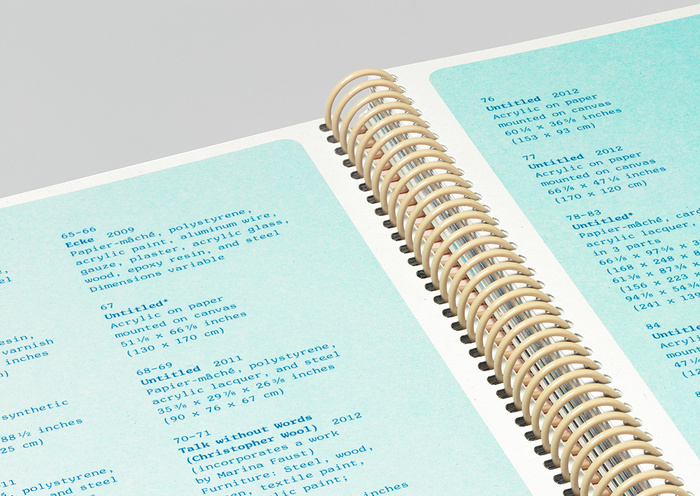 esin,
varnish
inches
)
synthetic
88 ½ inches
25 cm)
65–66
Ecke 2009
Papier-mâché, polystyrene,
acrylic paint, aluminum wire,
gauze, plaster, acrylic glass,
wood, epoxy resin, and steel
Dimensions variable
67
Untitled*
Acrylic on paper
51 ⅛ × 66 ⅞ inches
(130 × 170 cm)
68–69
Untitled 2011
Papier-mâché, polystyrene,
acrylic lacquer, and steel
35 ⅜ × 29 ⅞ × 26 ⅜ inches
(90 × 76 × 67 cm)
70–71
Talk without Words
(Christopher Wool) 2012
(incorporates a work
by Marina Faust)
Furniture: Steel, wood,
textile paint,
paint;
inches
11
polystyrene,
and steel
76
Untitled 2012
Acrylic on paper
mounted on canvas
60 ¼ × 36 ⅝ inches
(153 × 93 cm)
77
Untitled 2012
Acrylic on paper
mounted on canvas
66 ⅞ × 47 ¼ inches
(170 × 120 cm)
78–83
Untitled*
Papier-mâché, ca
acrylic lacquer,
in 3 parts
66 ⅛ × 97 ⅝ ×
(168 × 248 ×
61 ⅜ × 87 ¾
(156 × 223
94 ⅞ × 54
(241 × 13
84
Untitl
Acryli
mount
47
(12